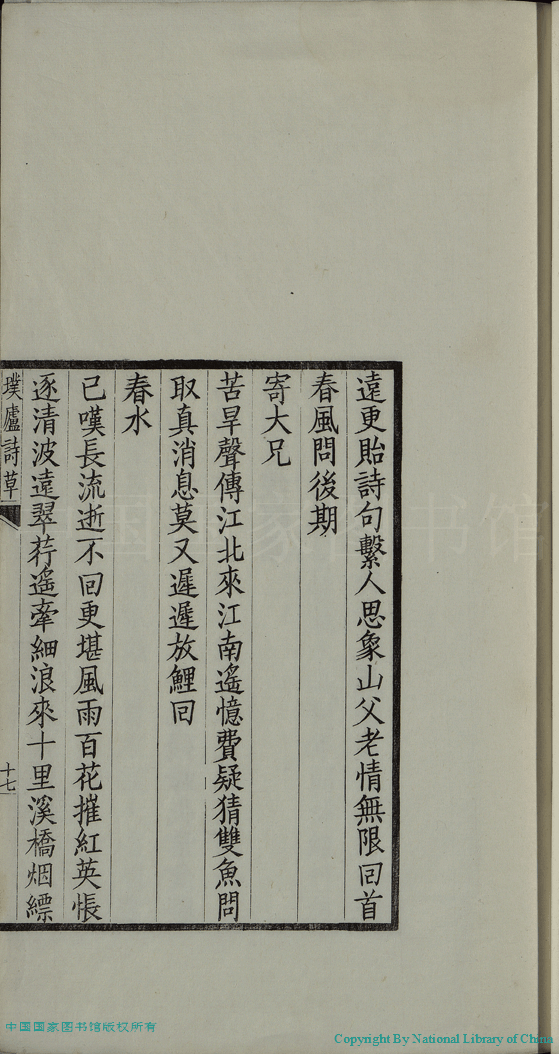 遠更貽詩句繫人思象山父老情無限回首
春風問後期
寄大兄
苦旱聲傳江北來江南遙憶費疑猜雙魚問
取真消息莫又遲遲放鯉回
春水
已嘆長流逝不回更堪風雨百花摧紅英悵
逐清波遠翠荇遙牽細浪來十里溪橋烟縹
璞廬詩草
十七
中国国家图书馆版权所有
Copyright By National Library of China